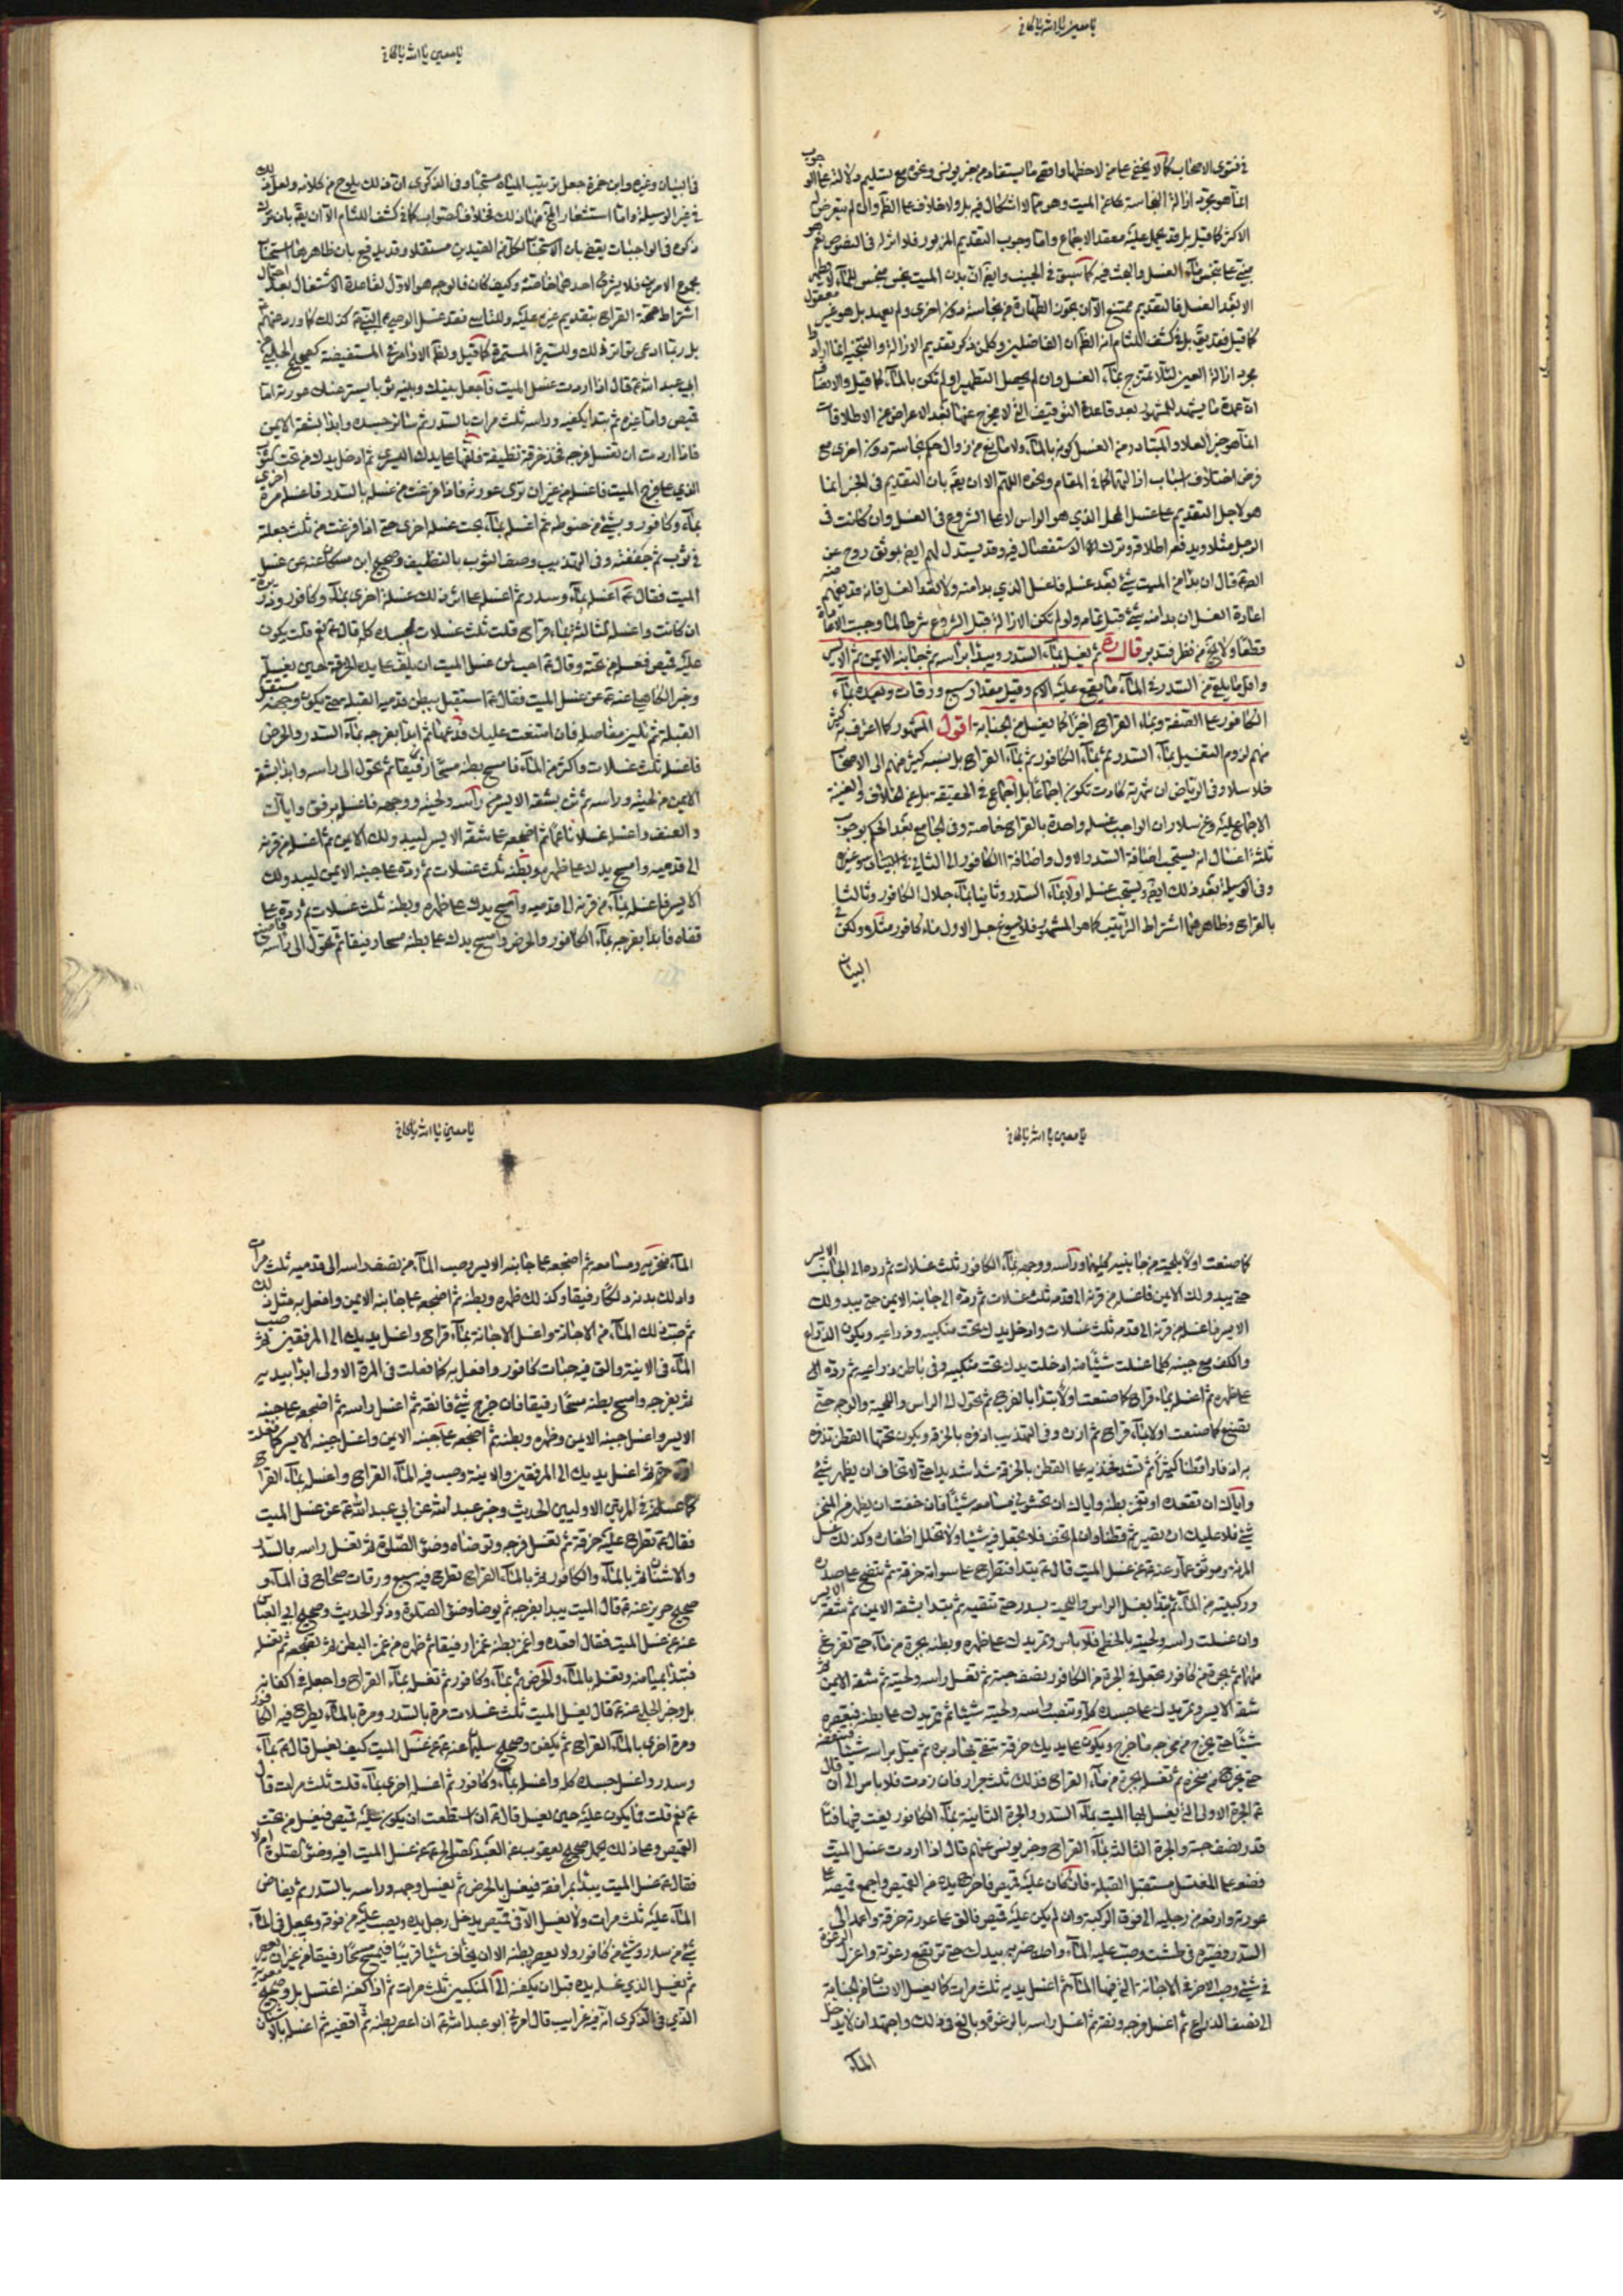 يا معين يا الله يا كافي
في فتوى الاصحاب كما لا يخفى على من لاحظها واقصى ما يستفاد من خبر يونس وغيره مع تسليم دلالته على الوجوب
انما هو مجرد ازالة النجاسة عن الميت وهو مما لا اشكال فيه بل ولا خلاف على الظ وان لم يتعرض له
الاكثر كما قيل بل قد حمل عليه معقد الاجماع واما وجوب التقديم المزبور فلا اثر له في النصوص نعم هو
مبني على تنجس ماء الغسل والبحث فيه كما سبق في الجنب وايض ان بدن الميت نجس منجس للماء لا يطهر
الا بعد الغسل فالتقديم ممتنع الا ان يجوز الطهارة من نجاسة دون اخرى ولم يعهد بل هو غير معقول
كما قيل فقد يق بل في كشف اللثام انه الظ ان الفاضلين وكل من ذكر تقديم الازالة والتنجية انما ارادوا
مجرد ازالة العين لئلا يمتزج بماء الغسل وان لم يحصل التطهير او لم تكن بالماء كما قيل والانصاف
ان عمدة ما يشهد للمشهور بعد قاعدة التوقيف التي لا يخرج عنها بعد الاعراض عن الاطلاقات
انما هو خبر العلا والمتبادر من الغسل كونه بالماء ولا مانع من زوال حكم نجاسة دون اخرى مع
فرض اختلاف اسباب ازالتها كما في المقام ونحوه اللهم الا ان يق بان التقديم في الخبر انما
هو لاجل التقديم على غسل المحل الذي هو الراس لا على الشروع في الغسل وان كانت في
الرجل مثلا ويدفعه اطلاقه وترك الاستفصال فيه وقد يستدل لهم ايض بموثق روح عن
الص ع قال ان بدا من الميت شيء بعد غسله فاغسل الذي بدا منه ولا تعد الغسل فانه قد يفهم منه
اعادة الغسل ان بدا منه شيء قبل تمامه ولو لم تكن الازالة قبل الشروع شرطا لما وجبت الاعادة
قطعا ولا يخ من نظر فتدبر قال ره ثم يغسل بماء السدر ويبدا براسه ثم جانبه الايمن ثم الايسر
واقل ما يلقى من السدر في الماء ما يقع عليه الاسم وقيل مقدار سبع ورقات وبعده بماء
الكافور على الصفة وبماء القراح اخيرا كما يغسل من الجنابة اقول المشهور كما اعترف به كثير
منهم لزوم التغسيل بماء السدر ثم بماء الكافور ثم بماء القراح بل نسبه كثير منهم الى الاصحاب
خلا سلار وفي الرياض ان شهرته كادت تكون اجماعا بل اجماع في الحقيقة بل عن الخلاف والغنية
الاجماع عليه وعن سلار ان الواجب غسله واحدة بالقراح خاصة وفي الجامع بعد الحكم بوجوب
ثلثة اغسال انه يستحب اضافة السدر الاول واضافة الكافور الى الثاني
وفي الوسيلة بعد ذلك ايض ويستحب غسله اولا بماء السدر وثانيا بماء جلال الكافور وثالثا
بالقراح وظاهرهما اشتراط الترتيب كما هو المشهور فلا يسوغ جعل الاول ماء كافور مثلا ولكن في
البيان
يا معين يا الله يا كافي
في البيان وغيره وابن حمزة جعل ترتيب المياه مستحبا وفي الذكرى ان ذلك يلوح من كلامه ولعل ذلك
في غير الوسيلة واما استشعار المخ منها ذلك فخلاف الصواب كما في كشف اللثام الا ان يق بان ترك
ذكره في الواجبات يقضي بان الاستحباب لكل من القيدين مستقلا وقد يدفع بان ظاهرهما استحباب
مجموع الامرين فلا يشترك احدهما خاصة وكيف كان فالوجه هو الاول لقاعدة الاشتغال بعد احتمال
اشتراط صحة القراح بتقديم غيره عليه وللتاسي فقد غسل الوصي ع النبي ص كذلك كما ورد عنهم ع
بل ربما ادعى تواتر ذلك وللسيرة المستمرة كما قيل وللاوامر في المستفيضة كصحيح الحلبي عن
ابي عبد الله ع قال اذا اردت غسل الميت فاجعل بينك وبينه ثوبا يستر عنك عورته اما
قميص واما غيره ثم تبدا بكفيه وراسه ثلث مرات بالسدر ثم سائر جسده وابدا بشقه الايمن
فاذا اردت ان تغسل فرجه فخذ خرقة نظيفة فلفها على يدك اليسرى ثم ادخل يدك من تحت الثوب
الذي على فرج الميت فاغسله من غير ان ترى عورته فاذا فرغت من غسله بالسدر فاغسله مرة اخرى
بماء وكافور وبشيء من حنوطه ثم اغسله بماء بحت غسلة اخرى حتى اذا فرغت من ثلث جعلته
في ثوب ثم جففته وفي التهذيب وصف الثوب بالتنظيف وصحيح ابن مسكان عنه ع عن غسل
الميت فقال ع اغسله بماء وسدر ثم اغسله على اثر ذلك غسلة اخرى بماء وكافور وذريرة
ان كانت واغسله الثالثة بماء قراح قلت ثلث غسلات لجسده كله قال ع نعم قلت يكون
عليه قميص فغسله من تحته وقال ع احب لمن غسل الميت ان يلف على يده الخرقة حين يغسله
وخبر الكاهلي عنه ع عن غسل الميت فقال ع استقبل ببطن قدميه القبلة حتى يكون وجهه مستقبل
القبلة ثم تلين مفاصله فان امتنعت عليك فدعها ثم ابدا بفرجه بماء السدر والحرض
فاغسله ثلث غسلات واكثر من الماء فامسح بطنه مسحا رفيقا ثم تحول الى راسه وابدا بشقه
الايمن من لحيته وراسه ثم ثن بشقه الايسر من راسه ولحيته ووجهه فاغسله برفق واياك
والعنف واغسله غسلا ناعما ثم اضجعه على شقه الايسر ليبدو لك الايمن ثم اغسله من قرنه
الى قدميه وامسح يدك على ظهره وبطنه ثلث غسلات ثم رده على جنبه الايمن ليبدو لك
الايسر فاغسله بماء من قرنه الى قدميه وامسح يدك على ظهره وبطنه ثلث غسلات ثم رده على
قفاه فابدا بفرجه بماء الكافور والحرض وامسح يدك على بطنه مسحا رفيقا ثم تحول الى راسه فاصنع
يا معين يا الله يا كافي
كما صنعت اولا بلحيته من جانبيه كليهما وراسه ووجهه بماء الكافور ثلث غسلات ثم رده الى الجانب الايسر
حتى يبدو لك الايمن فاغسله من قرنه الى قدمه ثلث غسلات ثم رده الى جانبه الايمن حتى يبدو لك
الايسر فاغسله من قرنه الى قدمه ثلث غسلات وادخل يدك تحت منكبيه وذراعيه ويكون الذراع
والكف مع جنبه كلما غسلت شيئا منه ادخلت يدك تحت منكبيه وفي باطن ذراعيه ثم رده الى
على ظهره ثم اغسله بماء قراح كما صنعت اولا تبتدا بالفرج ثم تحول الى الراس واللحية والوجه حتى
تصنع كما صنعت اولا بماء قراح ثم ازره وفي التهذيب اذفره بالخرقة ويكون تحتها القطن تذفره
به اذفارا قطنا كثيرا ثم تشد فخذيه على القطن بالخرقة شدا شديدا حتى لا تخاف ان يظهر شيء
واياك ان تقعده او تغمز بطنه واياك ان تحشو في مسامعه شيئا فان خفت ان يظهر من المنخر
شيء فلا عليك ان تصير ثم قطنا وان لم تخف فلا تجعل فيه شيئا ولا تخلل اظفاره وكذلك غسل
المراة وموثق عمار عنه ع عن غسل الميت قال ع تبدا فتطرح على سواته خرقة ثم تنضح على صدره
وركبتيه من الماء ثم تبدا بغسل الراس واللحية بسدر حتى تنقيه ثم تبدا بشقه الايمن ثم بشقه الايسر
وان غسلت راسه ولحيته بالخطمي فلا باس وتمر يدك على ظهره وبطنه بجرة من ماء حتى تفرغ
منها ثم بجرة من كافور تجعل في الجرة من الكافور نصف حبة ثم تغسل راسه ولحيته ثم شقه الايمن ثم
شقه الايسر وتمر يدك على جسده كله وتنصب راسه ولحيته شيئا ثم تمر يدك على بطنه فتعصره
شيئا حتى يخرج من مخرجه ما خرج ويكون على يديك خرقة تنقي بها دبره ثم تميل براسه شيئا فتنفضه
حتى يخرج من منخره ثم تغسله بجرة من ماء القراح فذلك ثلث جرار فان زدت فلا باس الى ان قال
ع الجرة الاولى التي يغسل بها الميت بماء السدر والجرة الثانية بماء الكافور يفت فيها فتا
قدر نصف حبة والجرة الثالثة بماء القراح وخبر يونس عنهم ع قال اذا اردت غسل الميت
فضعه على المغتسل مستقبل القبلة فان كان عليه قميص فاخرج يده من القميص واجمع قميصه على
عورته وارفعه من رجليه الى فوق الركبة وان لم يكن عليه قميص فالق على عورته خرقة واعمد الى
السدر فصيره في طشت وصب عليه الماء واضربه بيدك حتى ترتفع رغوته واعزل الرغوة
في شيء وصب الاخر في الاجانة التي فيها الماء ثم اغسل يديه ثلث مرات كما يغسل الانسان من الجنابة
الى نصف الذراع ثم اغسل فرجه ونقه ثم اغسل راسه بالرغوة وبالغ في ذلك واجتهد ان لا يدخل
الماء
يا معين يا الله يا كافي
الماء منخريه ومسامعه ثم اضجعه على جانبه الايسر وصب الماء من نصف راسه الى قدميه ثلث مرات
وادلك بدنه دلكا رفيقا وكذلك ظهره وبطنه ثم اضجعه على جانبه الايمن وافعل به مثل ذلك
ثم صب ذلك الماء من الاجانة واغسل الاجانة بماء قراح واغسل يديك الى المرفقين ثم صب
الماء في الانية والق فيه حبات كافور وافعل به كما فعلت في المرة الاولى ابدا بيديه
ثم بفرجه وامسح بطنه مسحا رفيقا فان خرج شيء فانقه ثم اغسل راسه ثم اضجعه على جنبه
الايسر واغسل جنبه الايمن وظهره وبطنه ثم اضجعه على جنبه الايمن واغسل جنبه الايسر كما فعلت
اول مرة ثم اغسل يديك الى المرفقين والانية وصب فيه الماء القراح واغسله بماء القراح
كما غسلته في المرتين الاوليين الحديث وخبر عبد الله عن ابي عبد الله ع عن غسل الميت
فقال ع تطرح عليه خرقة ثم تغسل فرجه وتوضاه وضوء الصلوة ثم تغسل راسه بالسدر
والاشنان ثم بالماء والكافور ثم بالماء القراح تطرح فيه سبع ورقات صحاح في الماء و
صحيح حريز عنه ع قال الميت يبدا بفرجه ثم يوضا وضوء الصلوة وذكر الحديث وصحيح ابي العباس
عنه ع عن غسل الميت فقال اقعده واغمز بطنه غمزا رفيقا ثم طهره من غمز البطن ثم تضجعه ثم تغسله
فتبدا بميامنه وتغسله بالماء والحرض ثم بماء وكافور ثم تغسله بماء القراح واجعله في اكفانه
بل وخبر الحلبي عنه ع قال يغسل الميت ثلث غسلات مرة بالسدر ومرة بالماء يطرح فيه الكافور
ومرة اخرى بالماء القراح ثم يكفن وصحيح سليمان عنه ع عن غسل الميت كيف يغسل قال ع بماء
وسدر واغسل جسده كله واغسله بماء وكافور ثم اغسله اخرى بماء قلت ثلث مرات قال
ع نعم قلت فما يكون عليه حين يغسل قال ع ان استطعت ان يكون عليه قميص فيغسل من تحت
القميص وعلى ذلك يحمل صحيح يعقوب عن العبد الصالح ع عن غسل الميت افيه وضوء الصلوة ام لا
فقال ع غسل الميت يبدا بمرافقه فيغسل بالحرض ثم يغسل وجهه وراسه بالسدر ثم يفاض
الماء عليه ثلث مرات ولا يغسل الا في قميص يدخل رجل يده ويصب عليه من فوقه ويجعل في الماء
شيء من سدر وشيء من كافور ولا يعصر بطنه الا ان يخاف شيئا قريبا فيمسح مسحا رفيقا من غير ان يعصر
ثم يغسل الذي غسله يده قبل ان يكفنه الى المنكبين ثلث مرات ثم اذا كفنه اغتسل بل وصحيح معوية
الذي في الذكرى انه فيه غرايب قال امرني ابو عبد الله ع ان اعصر بطنه ثم اوضيه ثم اغسله بالاشنان